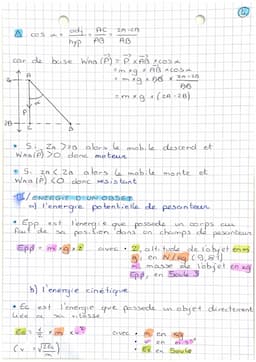 cos α = adj/hyp = AC/AB = ZA-ZB/AB
car de base WAB(P) = P × AB × cos α
= m×g × AB × ZA-ZB/AB
= m×g × (ZA - ZB)
ZA A
α
P
ZB C B
• Si ZA > ZB alors le mobile descend et
WAB(P) > 0 donc moteur
• Si ZA < ZB alors le mobile monte et
WAB(P) < 0 donc résistant
ENERGIE D'UN OBJET
a) l'énergie potentielle de pesanteur
• Epp est l'énergie que possède un corps du
fait de sa position dans un champs de pesanteur
Epp = m×g×Z avec • Z, altitude de l'objet en m
g, en N/kg (9,81)
m, masse de l'objet en kg
Epp, en Joule
b) l'énergie cinétique
• Ec est l'énergie que possède un objet directement
liée à sa vitesse
Ec = 1/2 × m × v² avec • m en kg
• v en m.s⁻¹
• Ec en Joule
(v = √2Ec/m)